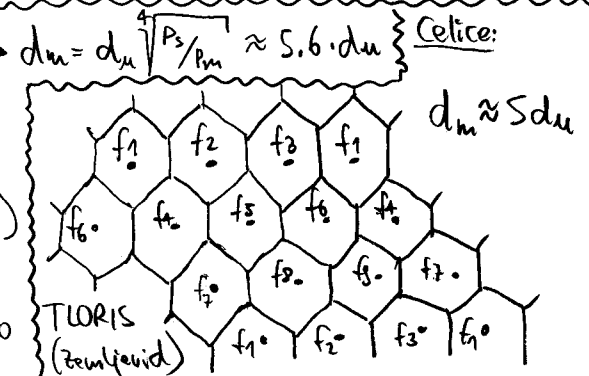 dm = du ⁴√(Ps/Pm) ≈ 5.6·du
Celice:
dm ≈ 5du
f1 f2 f3 f1
f6 f4 f5 f6 f4
f7 f8 f9 f7
TLORIS
f1 f2 f3 f1
(zemljevid)